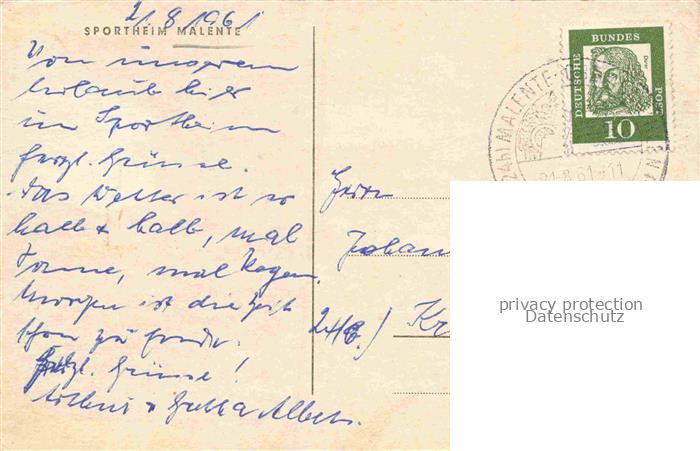 21/8 1961
SPORTHEIM MALENTE
Von unserem
Urlaub hier
im Sportheim
herzl. Grüsse.
Das Wetter ist so
halb + halb, mal
Sonne, mal Regen.
Morgen ist die Zeit
schon zu Ende.
Herzl. Grüsse!
Albers.
DEUTSCHE
BUNDES
POST
Dürer
10
(24b) MALENTE
21.8.61-11
Johan
24b)
Kr
privacy protection
Datenschutz